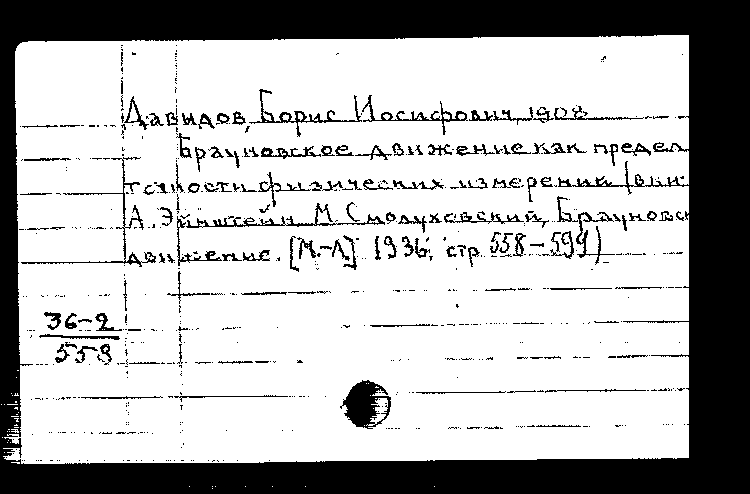 Давыдов, Борис Иосифович, 1908
Брауновское движение как предел
точности физических измерений (в кн:
А. Эйнштейн, М. Смолуховский, Брауновск
движение. [М.-Л.] 1936; стр 558-599)
36-2
558